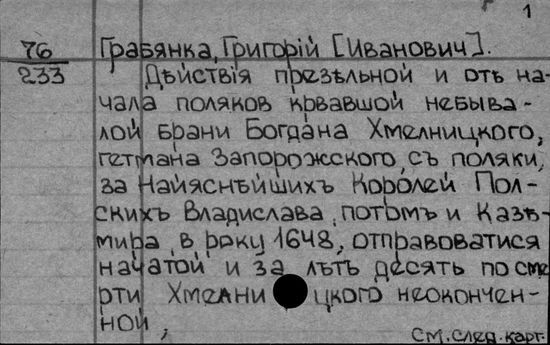 1
76
233
Грабянка, Григорій [Иванович].
Дѣйствія презѣльной и отъ на-
чала поляков крвавшой небыва-
лой брани Богдана Хмелницкого,
гетмана Запорожского, съ поляки,
за Найяснѣйшихъ Королей Пол-
скихъ Владислава, потомъ и Казѣ-
мира, в року 1648, отправоватися
начатой и за лѣтъ десять по сме
рти Хмелни цкого неокончен-
ной,
См. след. карт.